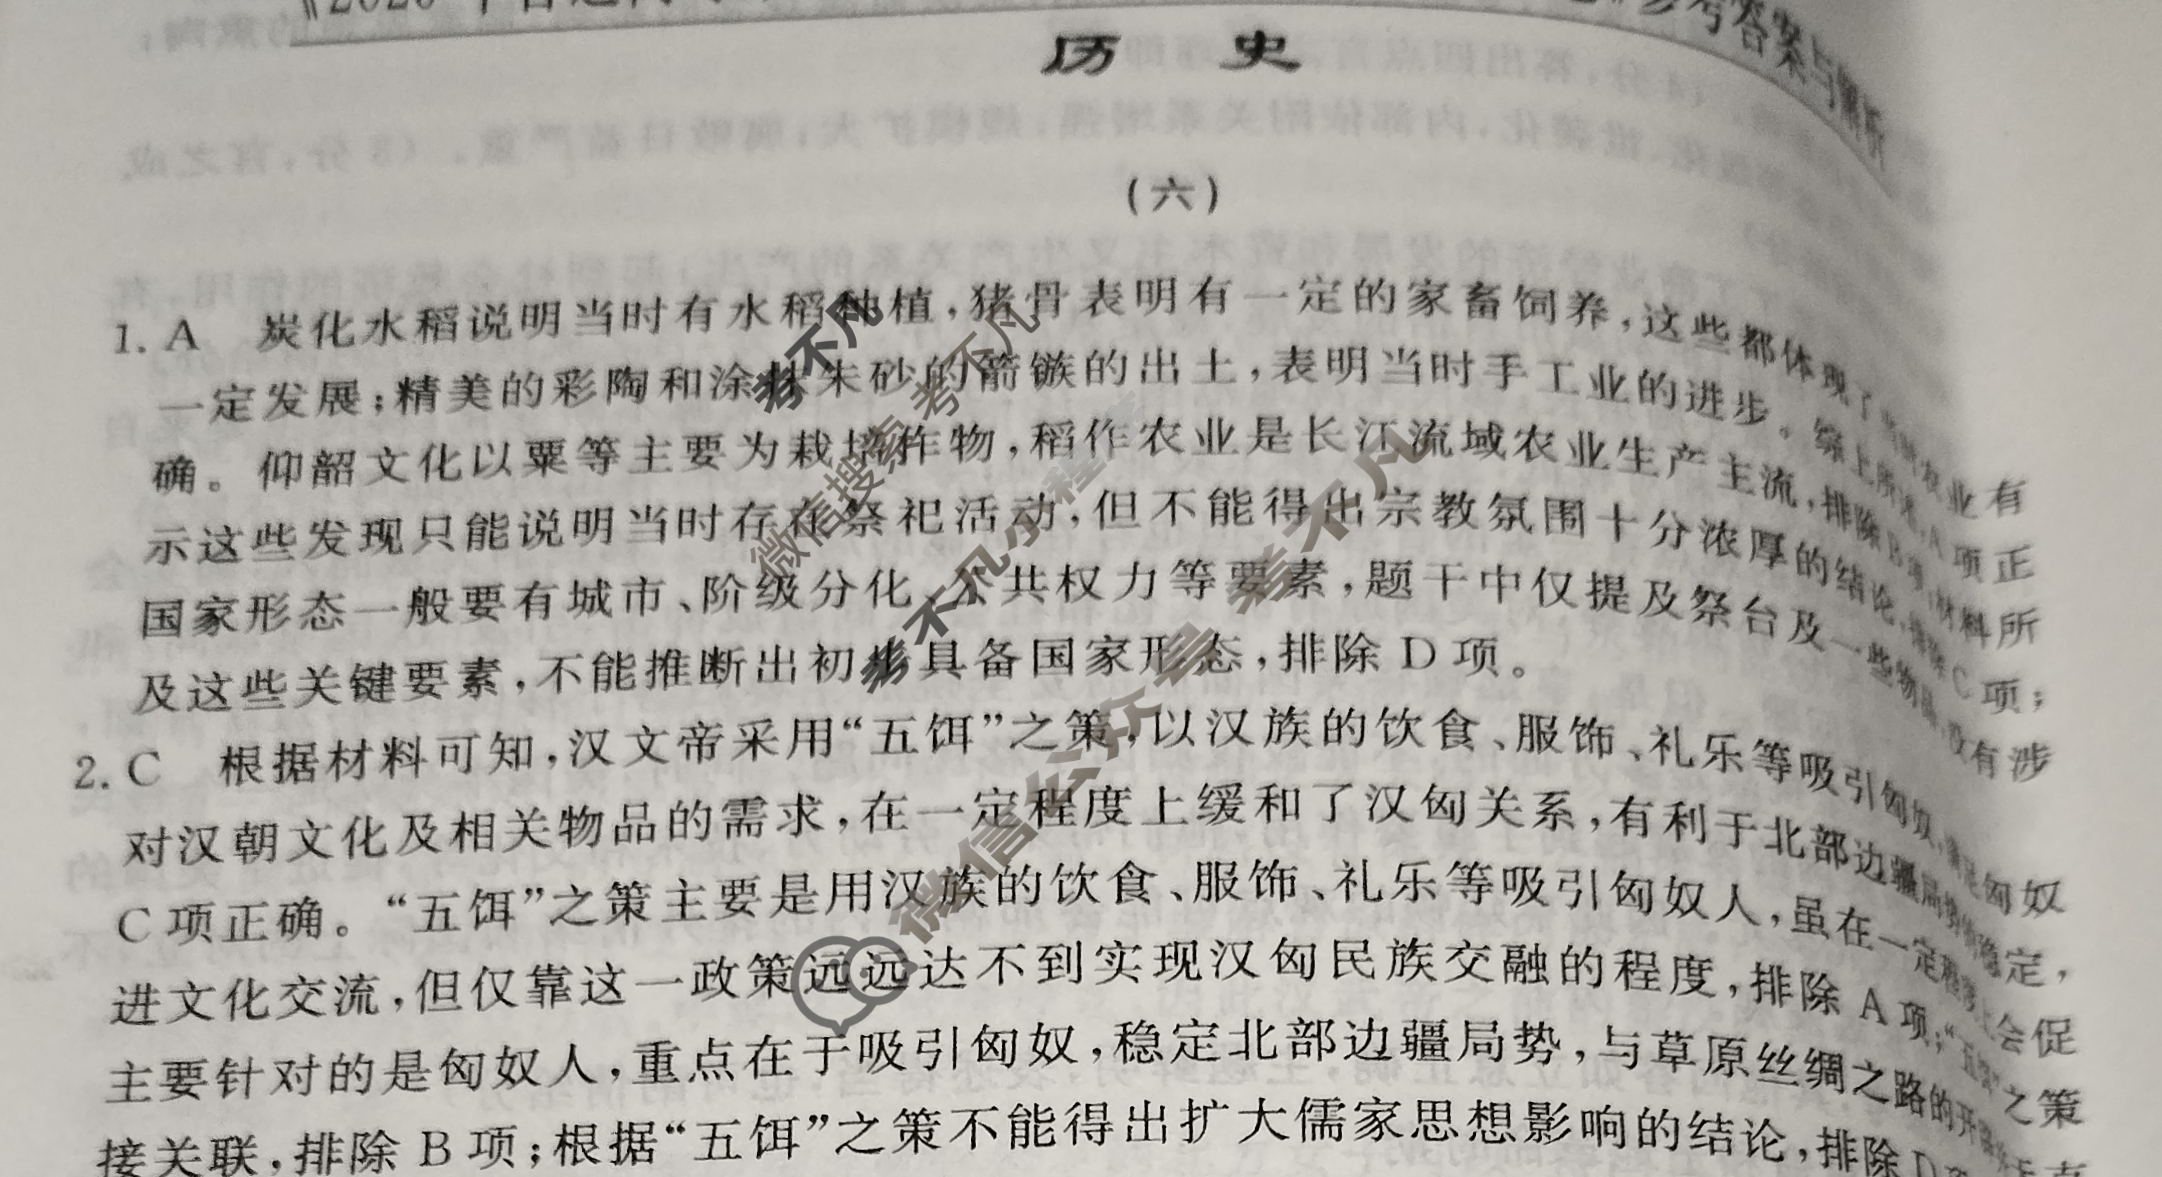 参考答案与解析
历 史
(六)
1. A 炭化水稻说明当时有水稻种植,猪骨表明有一定的家畜饲养,这些都体现了当时农业有
一定发展;精美的彩陶和涂抹朱砂的箭镞的出土,表明当时手工业的进步。综上所述,A项正
确。仰韶文化以粟等主要为栽培作物,稻作农业是长江流域农业生产主流,排除B项;材料所
示这些发现只能说明当时存在祭祀活动,但不能得出宗教氛围十分浓厚的结论,排除C项;
国家形态一般要有城市、阶级分化、公共权力等要素,题干中仅提及祭台及一些物品,没有涉
及这些关键要素,不能推断出初步具备国家形态,排除D项。
2. C 根据材料可知,汉文帝采用“五饵”之策,以汉族的饮食、服饰、礼乐等吸引匈奴,满足匈奴
对汉朝文化及相关物品的需求,在一定程度上缓和了汉匈关系,有利于北部边疆局势的稳定,
C项正确。“五饵”之策主要是用汉族的饮食、服饰、礼乐等吸引匈奴人,虽在一定程度上会促
进文化交流,但仅靠这一政策远远达不到实现汉匈民族交融的程度,排除A项;“五饵”之策
主要针对的是匈奴人,重点在于吸引匈奴,稳定北部边疆局势,与草原丝绸之路的开
接关联,排除B项;根据“五饵”之策不能得出扩大儒家思想影响的结论,排除D
考不凡
微信搜索 考不凡
考不凡小程序
微信公众号 考不凡